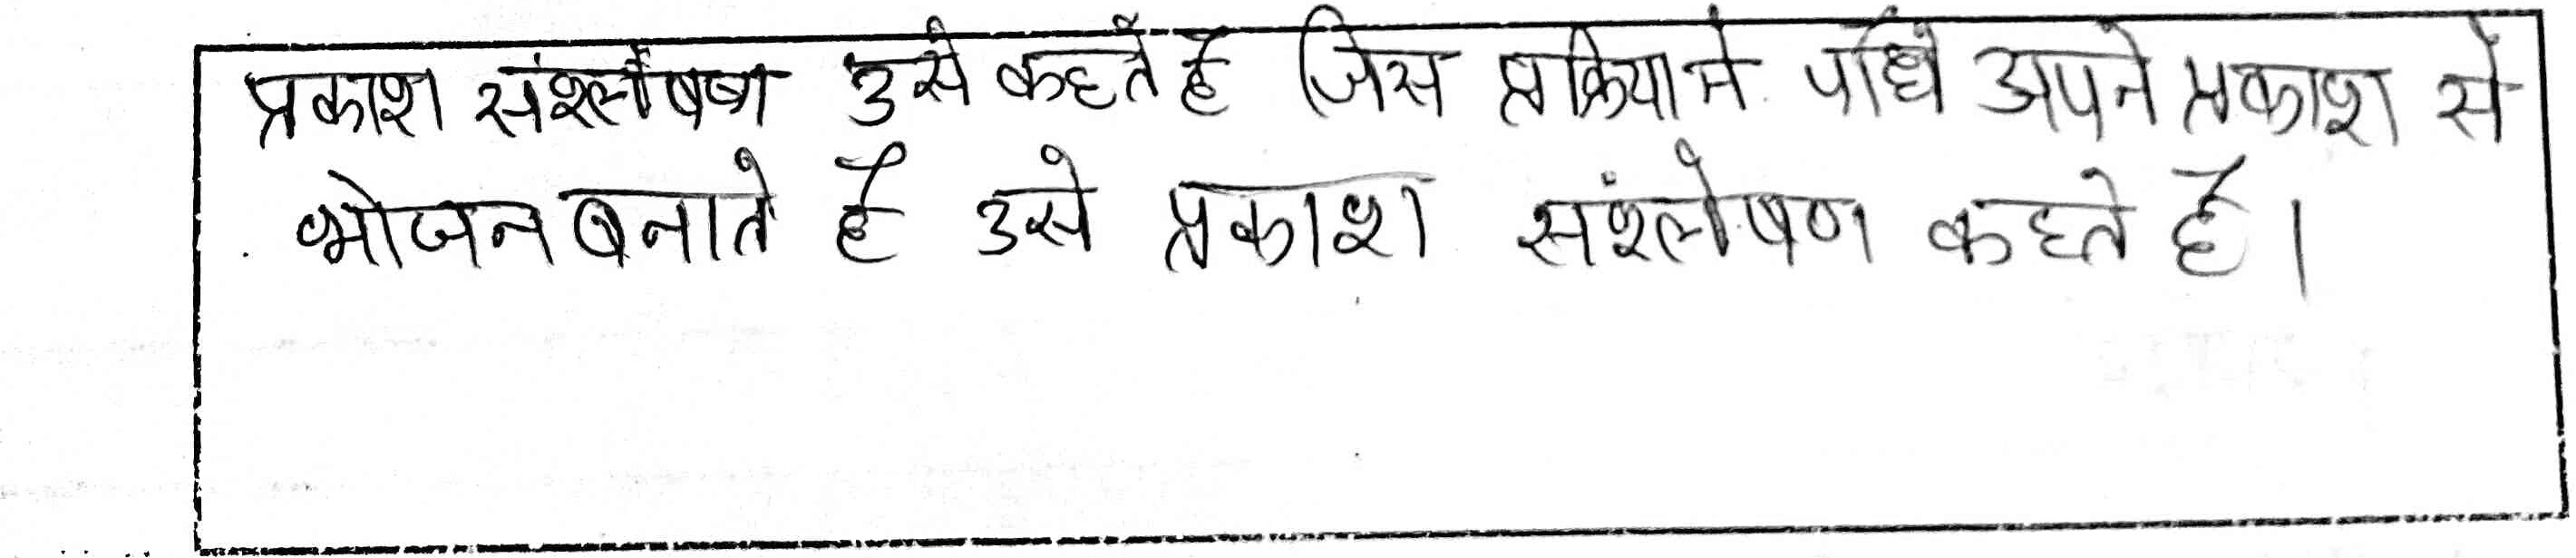 प्रकाश संश्लेषण उसे कहते है जिस प्रक्रिया मे पौधे अपने प्रकाश से
भोजन बनाते है उसे प्रकाश संश्लेषण कहते है।